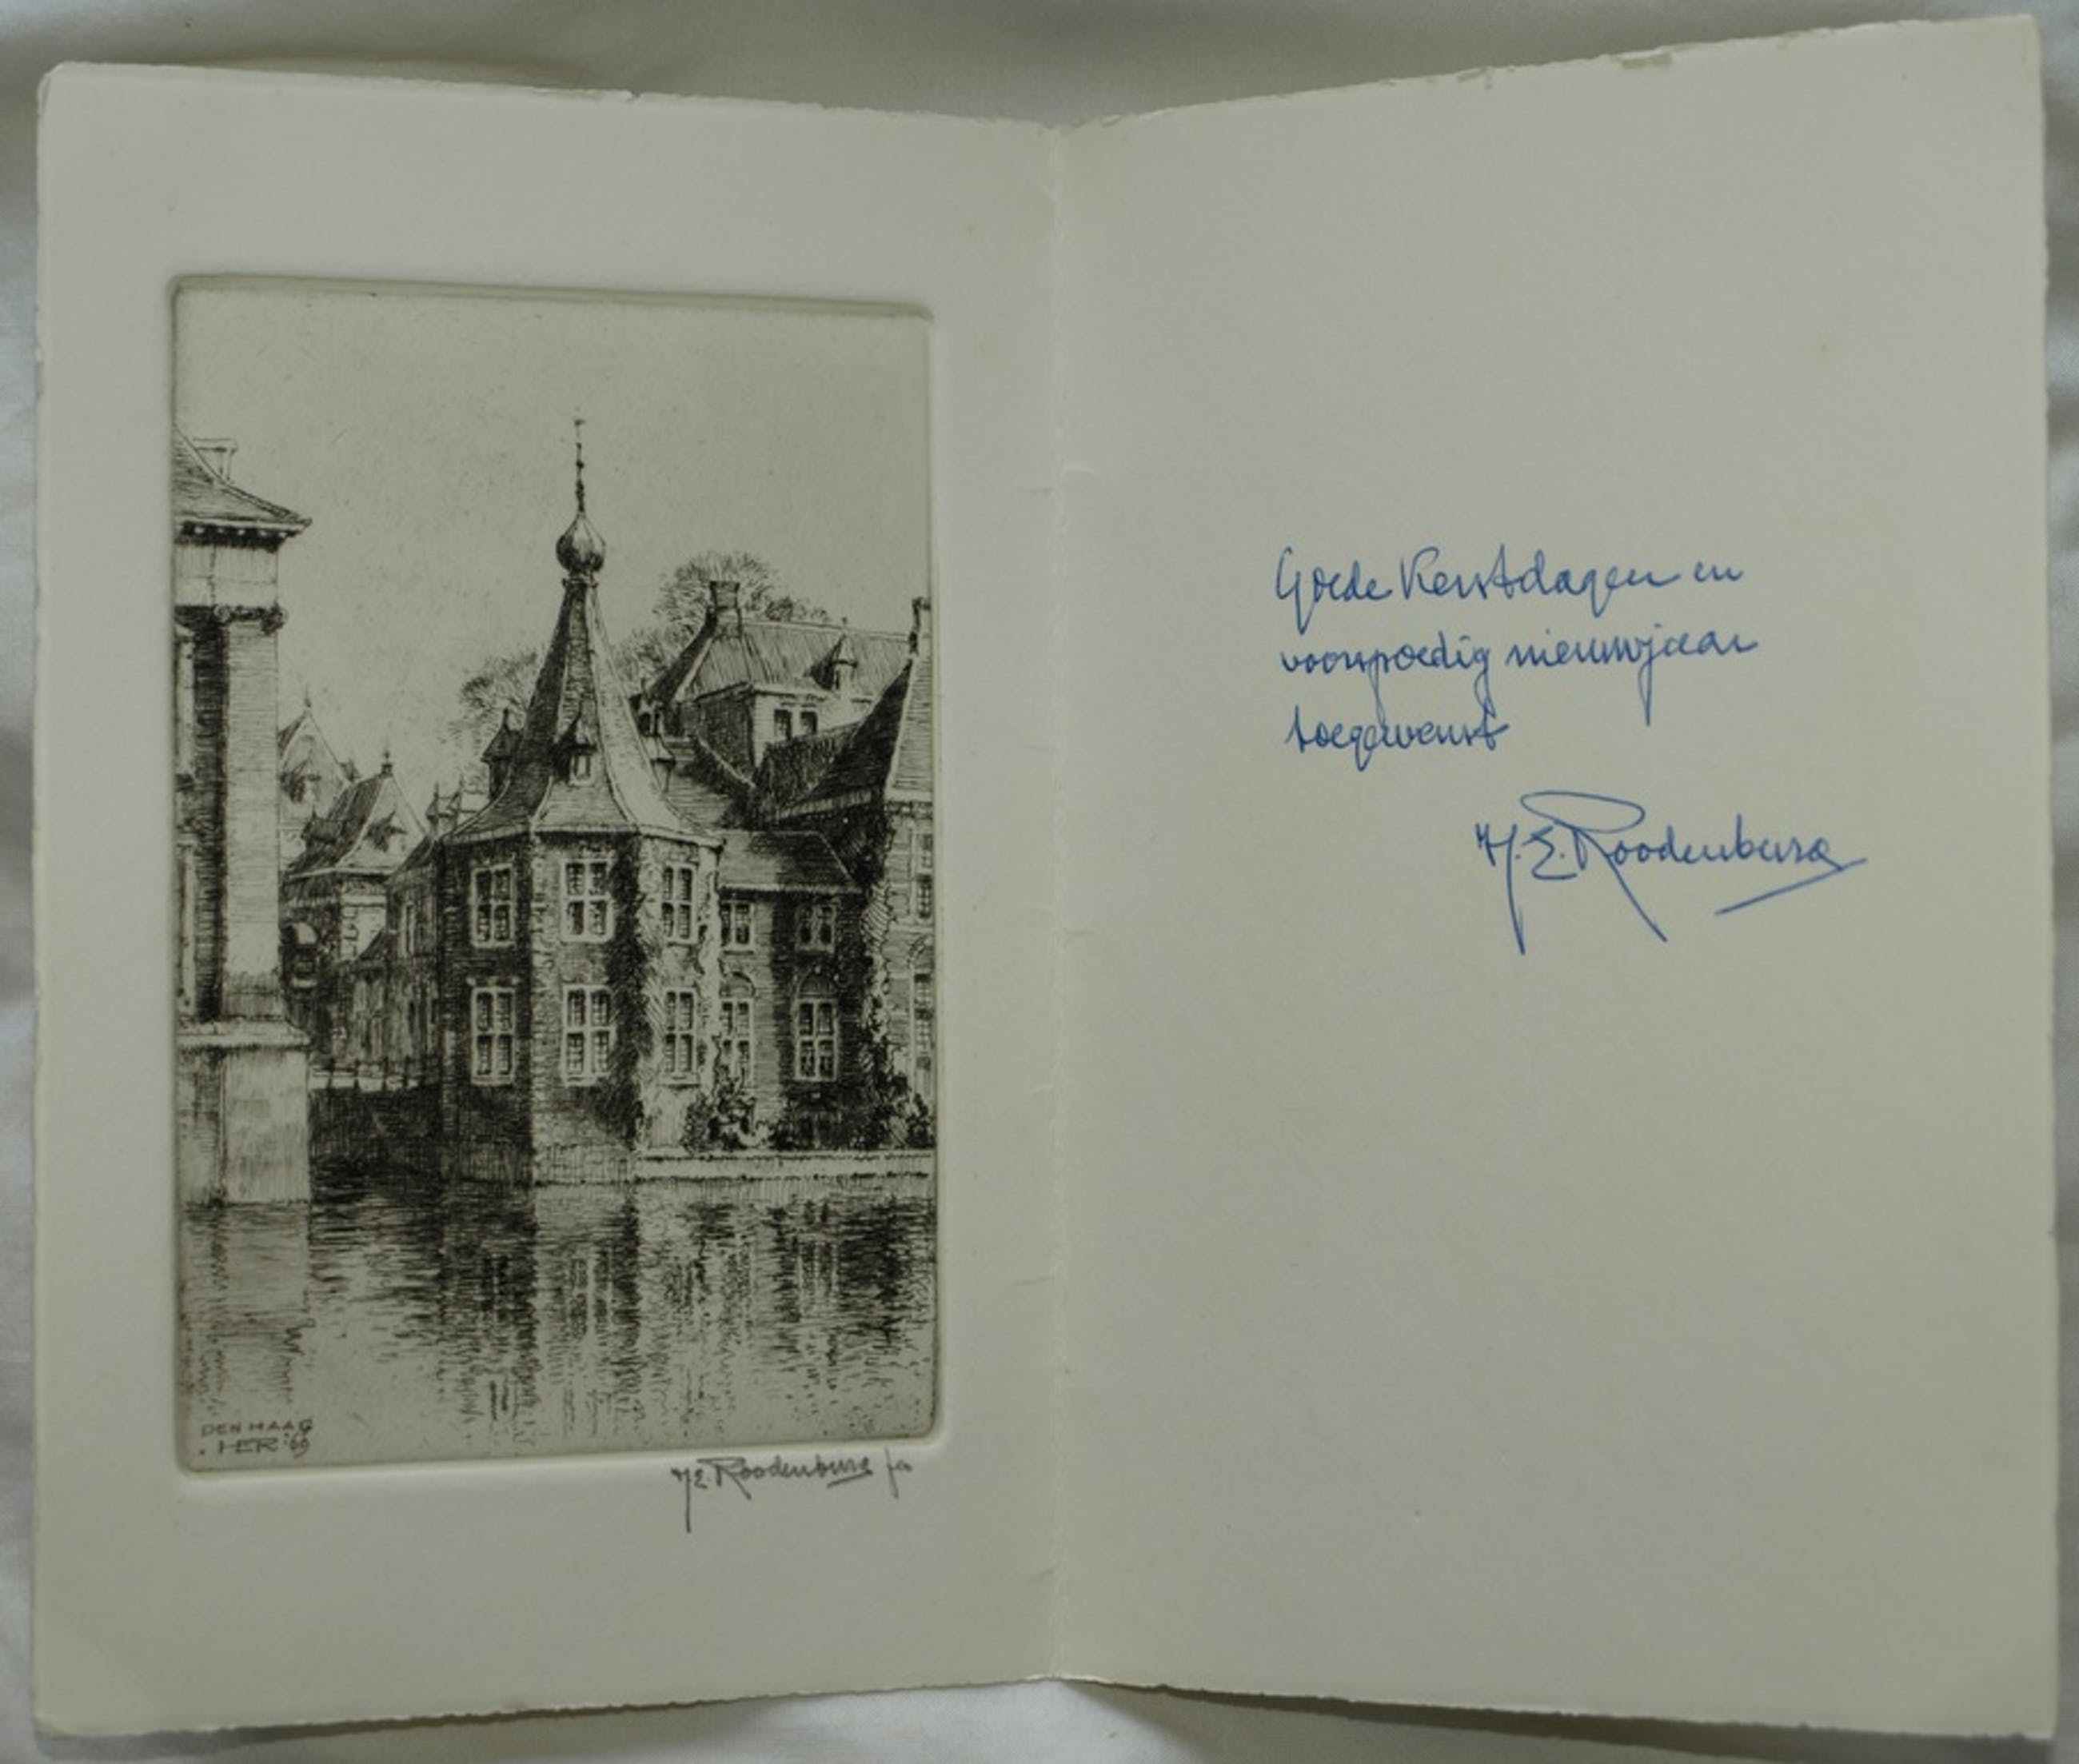 DEN HAAG
HER '69
H.E. Roodenburg fec
Goede Kerstdagen en
voorspoedig nieuwjaar
toegewenst
H.E. Roodenburg